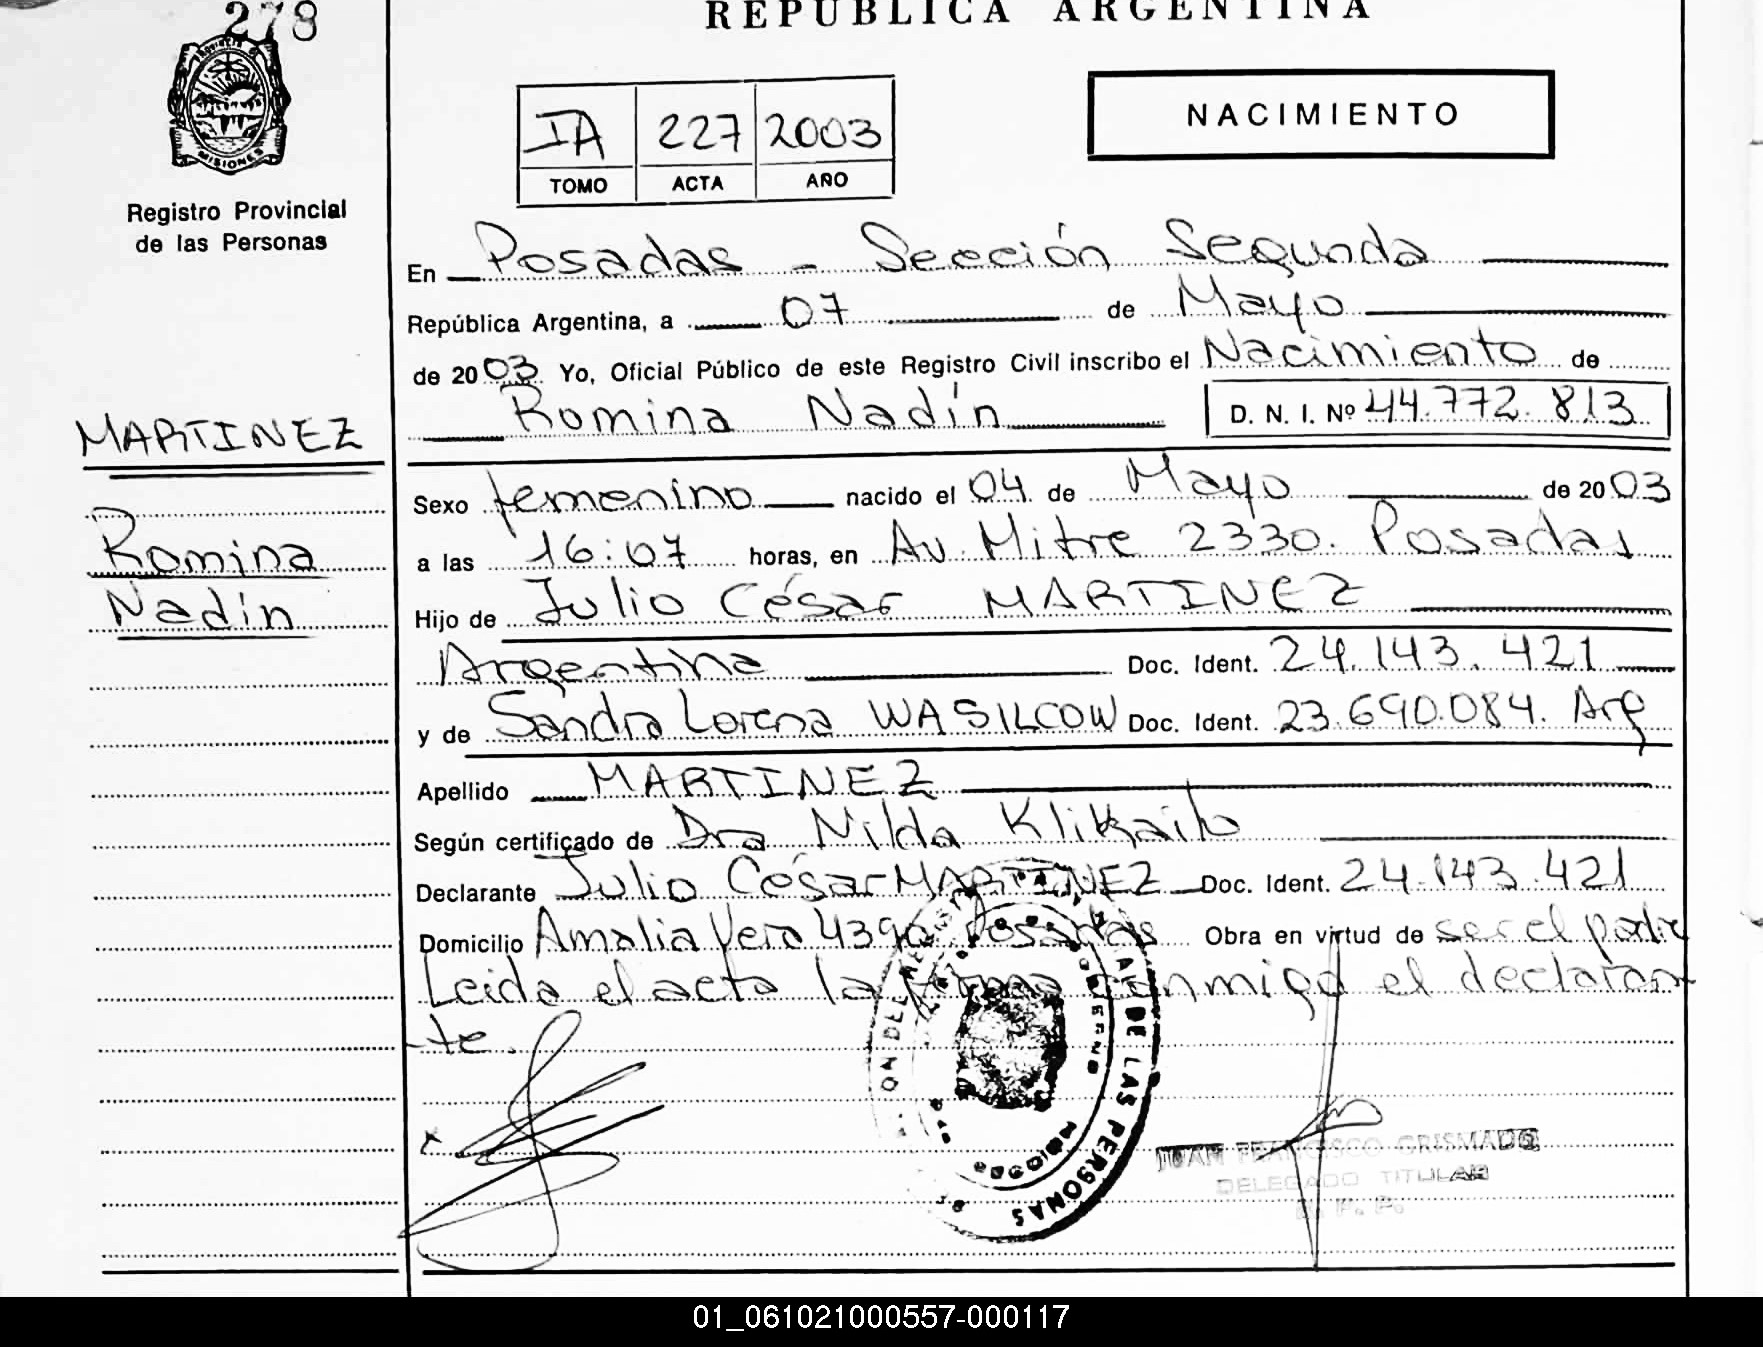 278
REPUBLICA ARGENTINA
MISIONES
Registro Provincial
de las Personas
IA 227 2003
TOMO ACTA AÑO
NACIMIENTO
En Posadas - Sección Segunda
República Argentina, a 07 de Mayo
de 2003 Yo, Oficial Público de este Registro Civil inscribo el Nacimiento de
Romina Nadín D. N. I. Nº 44.772.813
MARTINEZ
Romina
Nadín
Sexo femenino nacido el 04 de Mayo de 2003
a las 16:07 horas, en Av. Mitre 2330. Posadas
Hijo de Julio César MARTINEZ
Argentina Doc. Ident. 24.143.421
y de Sandra Lorena WASILCOW Doc. Ident. 23.690.084. Arg
Apellido MARTINEZ
Según certificado de Dra Nilda
Declarante Julio César MARTINEZ Doc. Ident. 24.143.421
Domicilio Amalia Vera 4390 Posadas Obra en virtud de ser el padre
Leida el acta la firma conmigo el declaran
te.
DE LAS PERSONAS
JUAN FRANCISCO GRISMADO
DELEGADO TITULAR
01_061021000557-000117